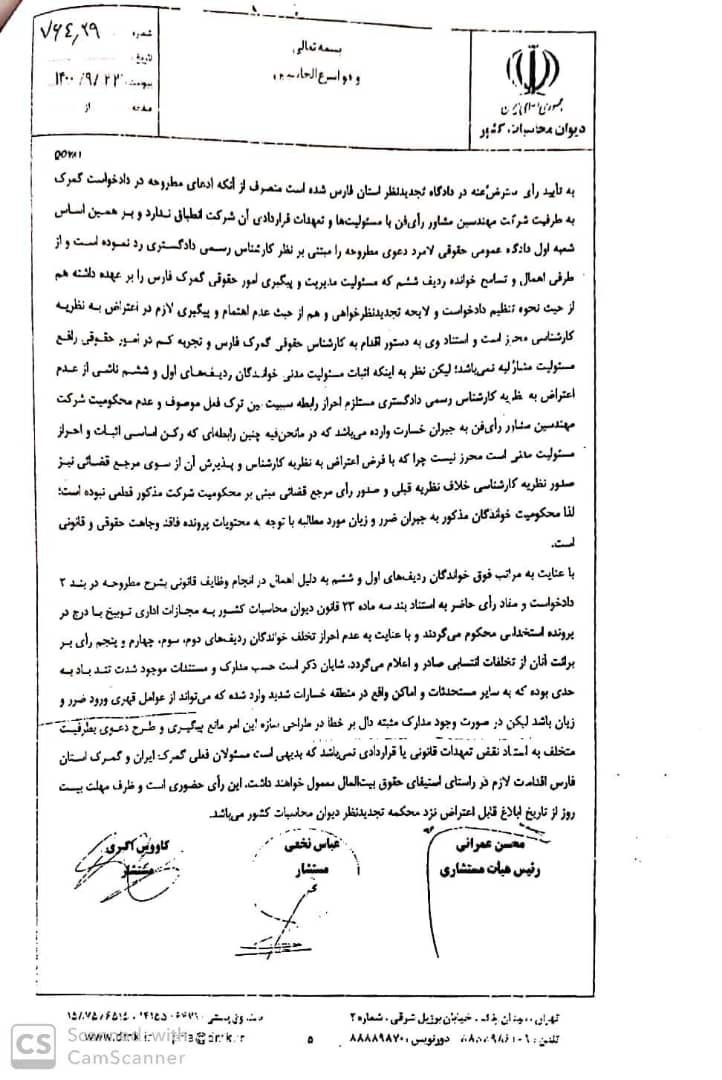 بسمه تعالی
و هو اسرع الحاسبین
شماره
تاریخ
۱۴۰۰/۹/۲۲
پیوست
صفحه از
جمهوری اسلامی ایران
دیوان محاسبات کشور
به تأیید رأی معترض‌عنه در دادگاه تجدیدنظر استان فارس شده است منصرف از آنکه ادعای مطروحه در دادخواست گمرک
به طرفیت شرکت مهندسین مشاور رأی‌فن با مسئولیت‌ها و تعهدات قراردادی آن شرکت انطباق ندارد و بر همین اساس
شعبه اول دادگاه عمومی حقوقی لامرد دعوی مطروحه را مبتنی بر نظر کارشناس رسمی دادگستری رد نموده است و از
طرفی اهمال و تسامح خوانده ردیف ششم که مسئولیت مدیریت و پیگیری امور حقوقی گمرک فارس را بر عهده داشته هم
از حیث نحوه تنظیم دادخواست و لایحه تجدیدنظرخواهی و هم از حیث عدم اهتمام و پیگیری لازم در اعتراض به نظریه
کارشناسی محرز است و استناد وی به دستور اقدام به کارشناس حقوقی گمرک فارس و تجربه کم در امور حقوقی رافع
مسئولیت مشارالیه نمی‌باشد؛ لیکن نظر به اینکه اثبات مسئولیت مدنی خواندگان ردیف‌های اول و ششم ناشی از عدم
اعتراض به نظریه کارشناس رسمی دادگستری مستلزم احراز رابطه سببیت بین ترک فعل موصوف و عدم محکومیت شرکت
مهندسین مشاور رأی‌فن به جبران خسارت وارده می‌باشد که در مانحن‌فیه چنین رابطه‌ای که رکن اساسی اثبات و احراز
مسئولیت مدنی است محرز نیست چرا که با فرض اعتراض به نظریه کارشناس و پذیرش آن از سوی مرجع قضائی نیز
صدور نظریه کارشناسی خلاف نظریه قبلی و صدور رأی مرجع قضائی مبنی بر محکومیت شرکت مذکور قطعی نبوده است؛
لذا محکومیت خواندگان مذکور به جبران ضرر و زیان مورد مطالبه با توجه به محتویات پرونده فاقد وجاهت حقوقی و قانونی
است.
با عنایت به مراتب فوق خواندگان ردیف‌های اول و ششم به دلیل اهمال در انجام وظایف قانونی بشرح مطروحه در بند ۲
دادخواست و مفاد رأی حاضر به استناد بند سه ماده ۲۳ قانون دیوان محاسبات کشور به مجازات اداری توبیخ با درج در
پرونده استخدامی محکوم می‌گردند و با عنایت به عدم احراز تخلف خواندگان ردیف‌های دوم، سوم، چهارم و پنجم رأی بر
برائت آنان از تخلفات انتسابی صادر و اعلام می‌گردد. شایان ذکر است حسب مدارک و مستندات موجود شدت تند باد به
حدی بوده که به سایر مستحدثات و اماکن واقع در منطقه خسارات شدید وارد شده که می‌تواند از عوامل قهری ورود ضرر و
زیان باشد لیکن در صورت وجود مدارک مثبته دال بر خطا در طراحی سازه این امر مانع پیگیری و طرح دعوی بطرفیت
متخلف به استناد نقض تعهدات قانونی یا قراردادی نمی‌باشد که بدیهی است مسئولان فعلی گمرک ایران و گمرک استان
فارس اقدامات لازم در راستای استیفای حقوق بیت‌المال معمول خواهند داشت. این رأی حضوری است و ظرف مهلت بیست
روز از تاریخ ابلاغ قابل اعتراض نزد محکمه تجدیدنظر دیوان محاسبات کشور می‌باشد.
محسن عمرانی
رئیس هیأت مستشاری
عباس نخعی
مستشار
کاووس اکبری
مستشار
تهران، خیابان برزیل شرقی، شماره ۲
تلفن: دورنویس: ۸۸۸۸۹۸۷۰
۵
CS
Scanned with
CamScanner